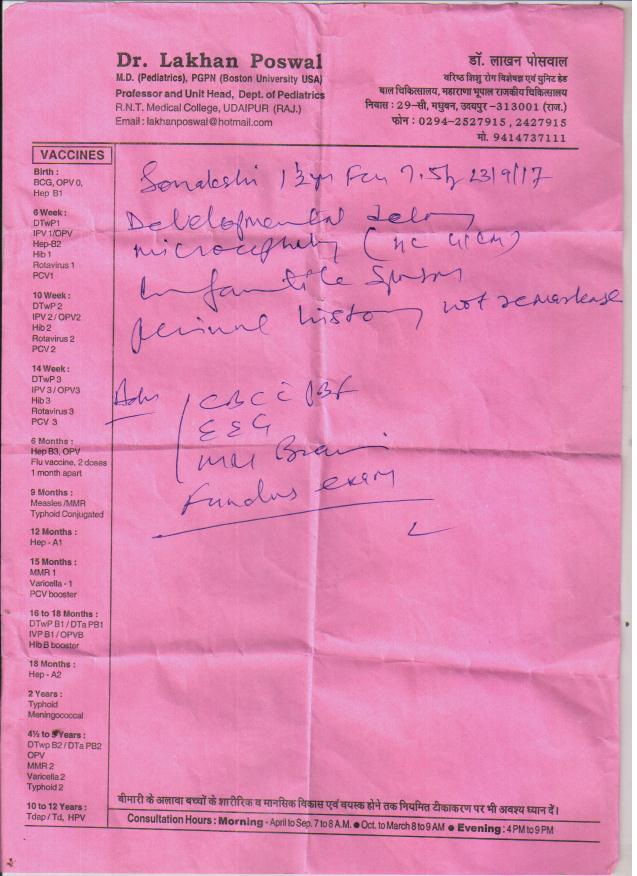 Dr. Lakhan Poswal
M.D. (Pediatrics), PGPN (Boston University USA)
Professor and Unit Head, Dept. of Pediatrics
R.N.T. Medical College, UDAIPUR (RAJ.)
Email : lakhanposwal@hotmail.com
डॉ. लाखन पोसवाल
वरिष्ठ शिशु रोग विशेषज्ञ एवं युनिट हेड
बाल चिकित्सालय, महाराणा भूपाल राजकीय चिकित्सालय
निवास : 29-सी, मधुबन, उदयपुर -313001 (राज.)
फोन : 0294-2527915, 2427915
मो. 9414737111
VACCINES
Birth :
BCG, OPV 0,
Hep B1
6 Week :
DTwP1
IPV 1/OPV
Hep-B2
Hib 1
Rotavirus 1
PCV1
10 Week :
DTwP 2
IPV 2 / OPV2
Hib 2
Rotavirus 2
PCV 2
14 Week :
DTwP 3
IPV 3 / OPV3
Hib 3
Rotavirus 3
PCV 3
6 Months :
Hep B3, OPV
Flu vaccine, 2 doses
1 month apart
9 Months :
Measles /MMR
Typhoid Conjugated
12 Months :
Hep - A1
15 Months :
MMR 1
Varicella - 1
PCV booster
16 to 18 Months :
DTwP B1 / DTa PB1
IVP B1 / OPVB
Hib B booster
18 Months :
Hep - A2
2 Years :
Typhoid
Meningococcal
4½ to 5 Years :
DTwp B2 / DTa PB2
OPV
MMR 2
Varicella 2
Typhoid 2
10 to 12 Years :
Tdap / Td, HPV
Sonakshi 1½yr 23/9/17
Developmental delay
microcephaly (HC 41cm)
Infantile Spasm
history not remarkable
Adv
CBC c PBF
EEG
MRI Brain
Fundus exam
बीमारी के अलावा बच्चों के शारीरिक व मानसिक विकास एवं वयस्क होने तक नियमित टीकाकरण पर भी अवश्य ध्यान दें।
Consultation Hours : Morning - April to Sep. 7 to 8 A.M. ● Oct. to March 8 to 9 AM ● Evening : 4 PM to 9 PM